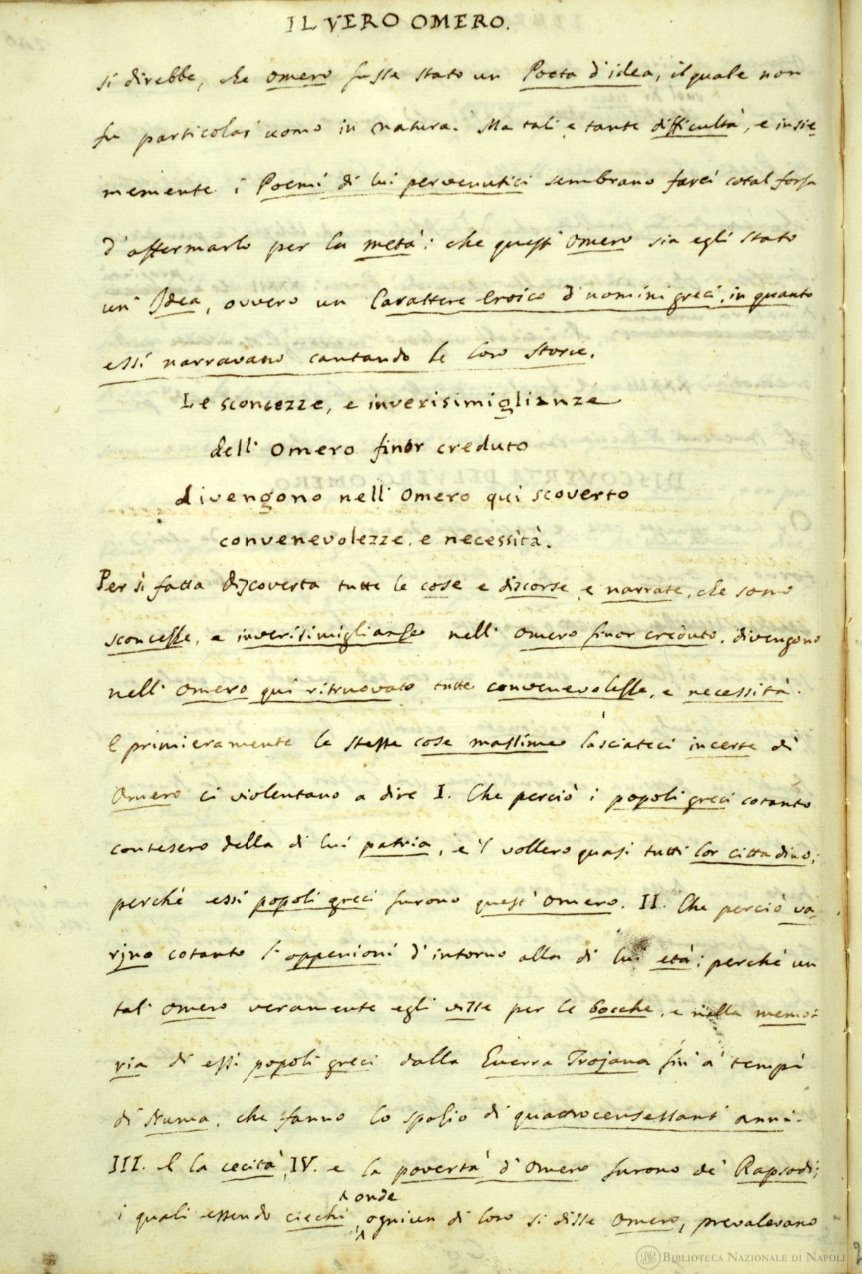 IL VERO OMERO.
si direbbe, che Omero fusse stato un Poeta d'idea, il quale non
fu particolar uomo in natura. Ma tali, e tante difficultà, e insie
memente i Poemi di lui pervenutici sembrano farci cotal forza
d'affermarlo per la metà: che quest' Omero sia egli stato
un' Idea, ovvero un Carattere Eroico d'uomini greci, in quanto
essi narravano cantando le loro storie.
Le sconcezze, e inverisimiglianze
dell' Omero finor creduto
divengono nell' Omero qui scoverto
convenevolezze, e necessità.
Per sì fatta Discoverta tutte le cose e discorse, e narrate, che sono
sconcezze, e inverisimiglianze nell' Omero finor creduto, divengono
nell' Omero qui ritruovato tutte convenevolezze, e necessità.
E primieramente le stesse cose massime lasciateci incerte di
Omero ci violentano a dire I. Che perciò i popoli greci cotanto
contesero della di lui patria, e 'l vollero quasi tutti lor cittadino;
perché essi popoli greci furono quest' Omero. II. Che perciò va
rjno cotanto l'oppenioni d'intorno alla di lui età; perché un
tal Omero veramente egli visse per le bocche, e nella memo
ria di essi popoli greci dalla Guerra Trojana fin' a' tempi
di Numa, che fanno lo spazio di quattrocensessant' anni.
III. E la cecità, IV. e la povertà d'Omero furono de' Rapsodi;
onde
i quali essendo ciechi, ogniun di loro si disse Omero, prevalevano
BIBLIOTECA NAZIONALE DI NAPOLI